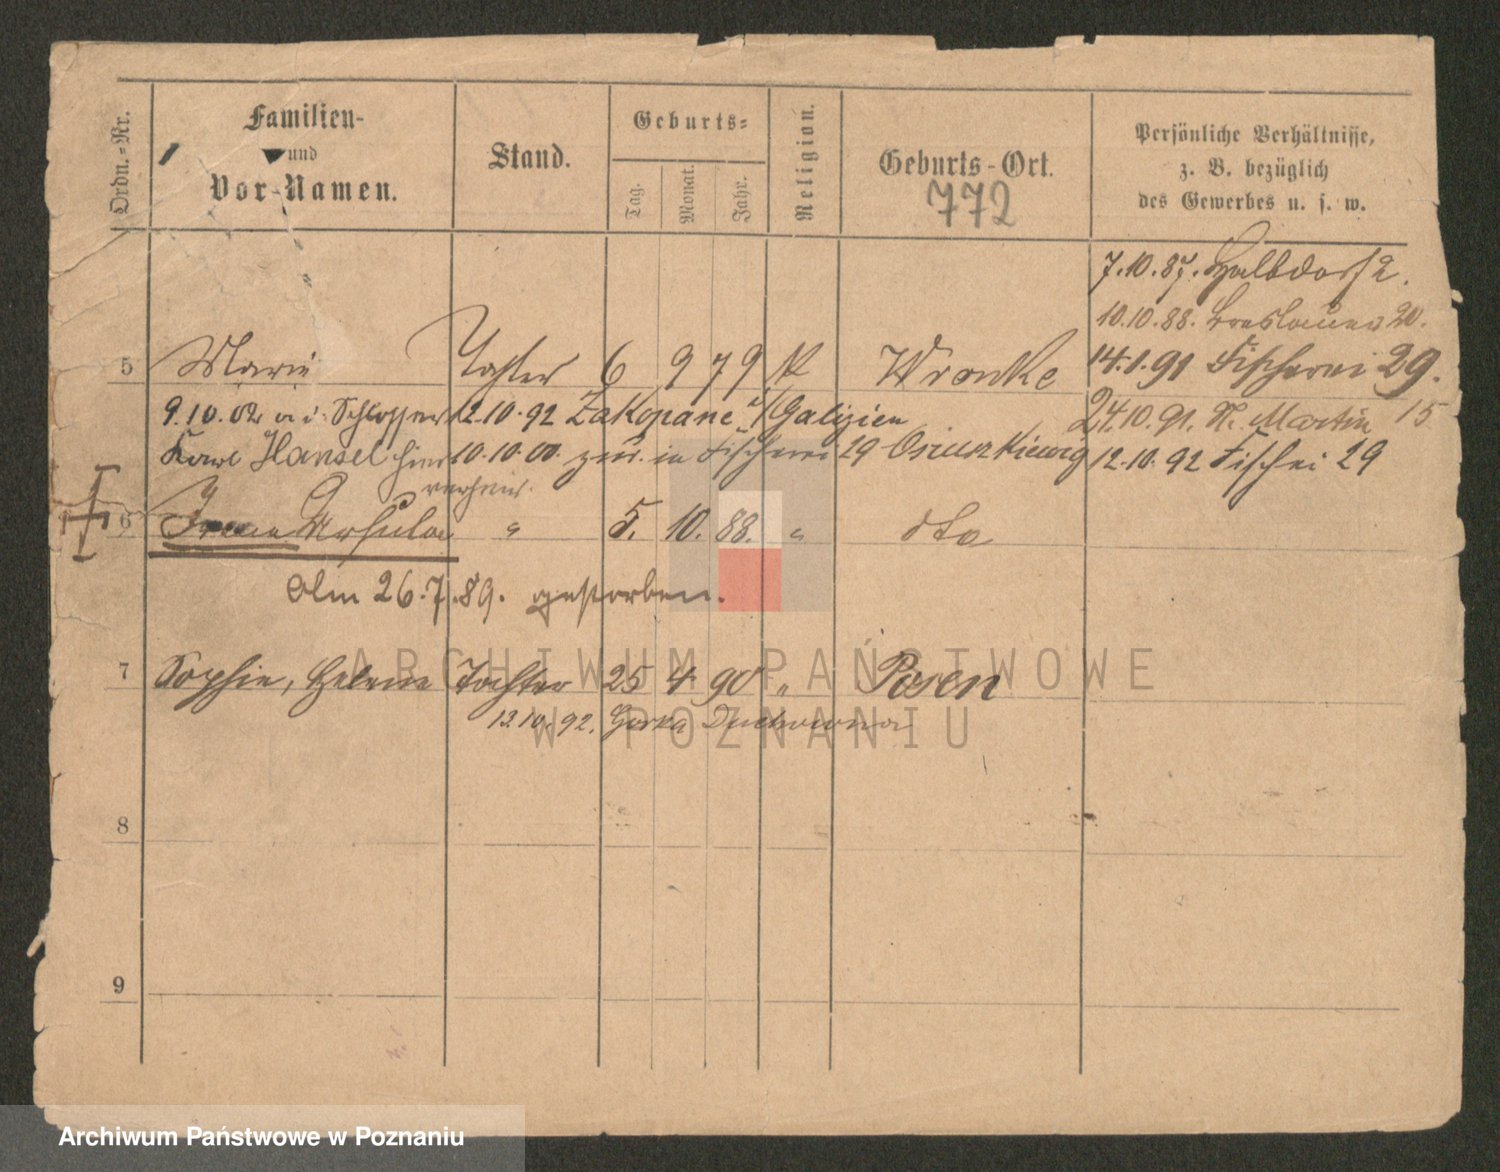 Ordn.-Nr.
Familien-
und
Vor-Namen.
Stand.
Geburts-
Tag.
Monat.
Jahr.
Religion.
Geburts-Ort.
772
Persönliche Verhältnisse,
z. B. bezüglich
des Gewerbes u. s. w.
7.10.87. Halbdorf 2.
10.10.88. Breslauer 20.
5 Marie Tochter 6 9 79 K Wronke 14.1.91 Fischerei 29.
9.10.02 a. d. Schlosser 12.10.92 Zakopane i/Galizien 24.10.91. St. Martin 15
Karl Hansel hier 10.10.00 zur. in Fischerei 29 12.10.92 Fischei 29
verheir.
6 Irene Ursula " 5. 10. 88. " dto
Am 26.7.89. gestorben.
7 Sophie, Helene Tochter 25 4 90 " Posen
13.10.92. Gorka Duchowna
8
9
ARCHIWUM PAŃSTWOWE
W POZNANIU
Archiwum Państwowe w Poznaniu